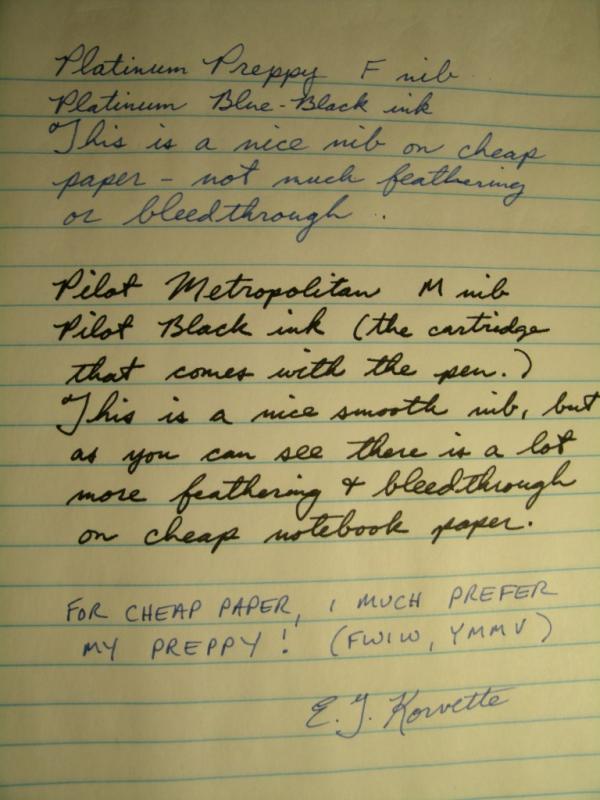 Platinum Preppy F nib
Platinum Blue-Black ink
This is a nice nib on cheap
paper - not much feathering
or bleedthrough.
Pilot Metropolitan M nib
Pilot Black ink (the cartridge
that comes with the pen.)
This is a nice smooth nib, but
as you can see there is a lot
more feathering & bleedthrough
on cheap notebook paper.
FOR CHEAP PAPER, I MUCH PREFER
MY PREPPY! (FWIW, YMMV)
E. J. Korvette